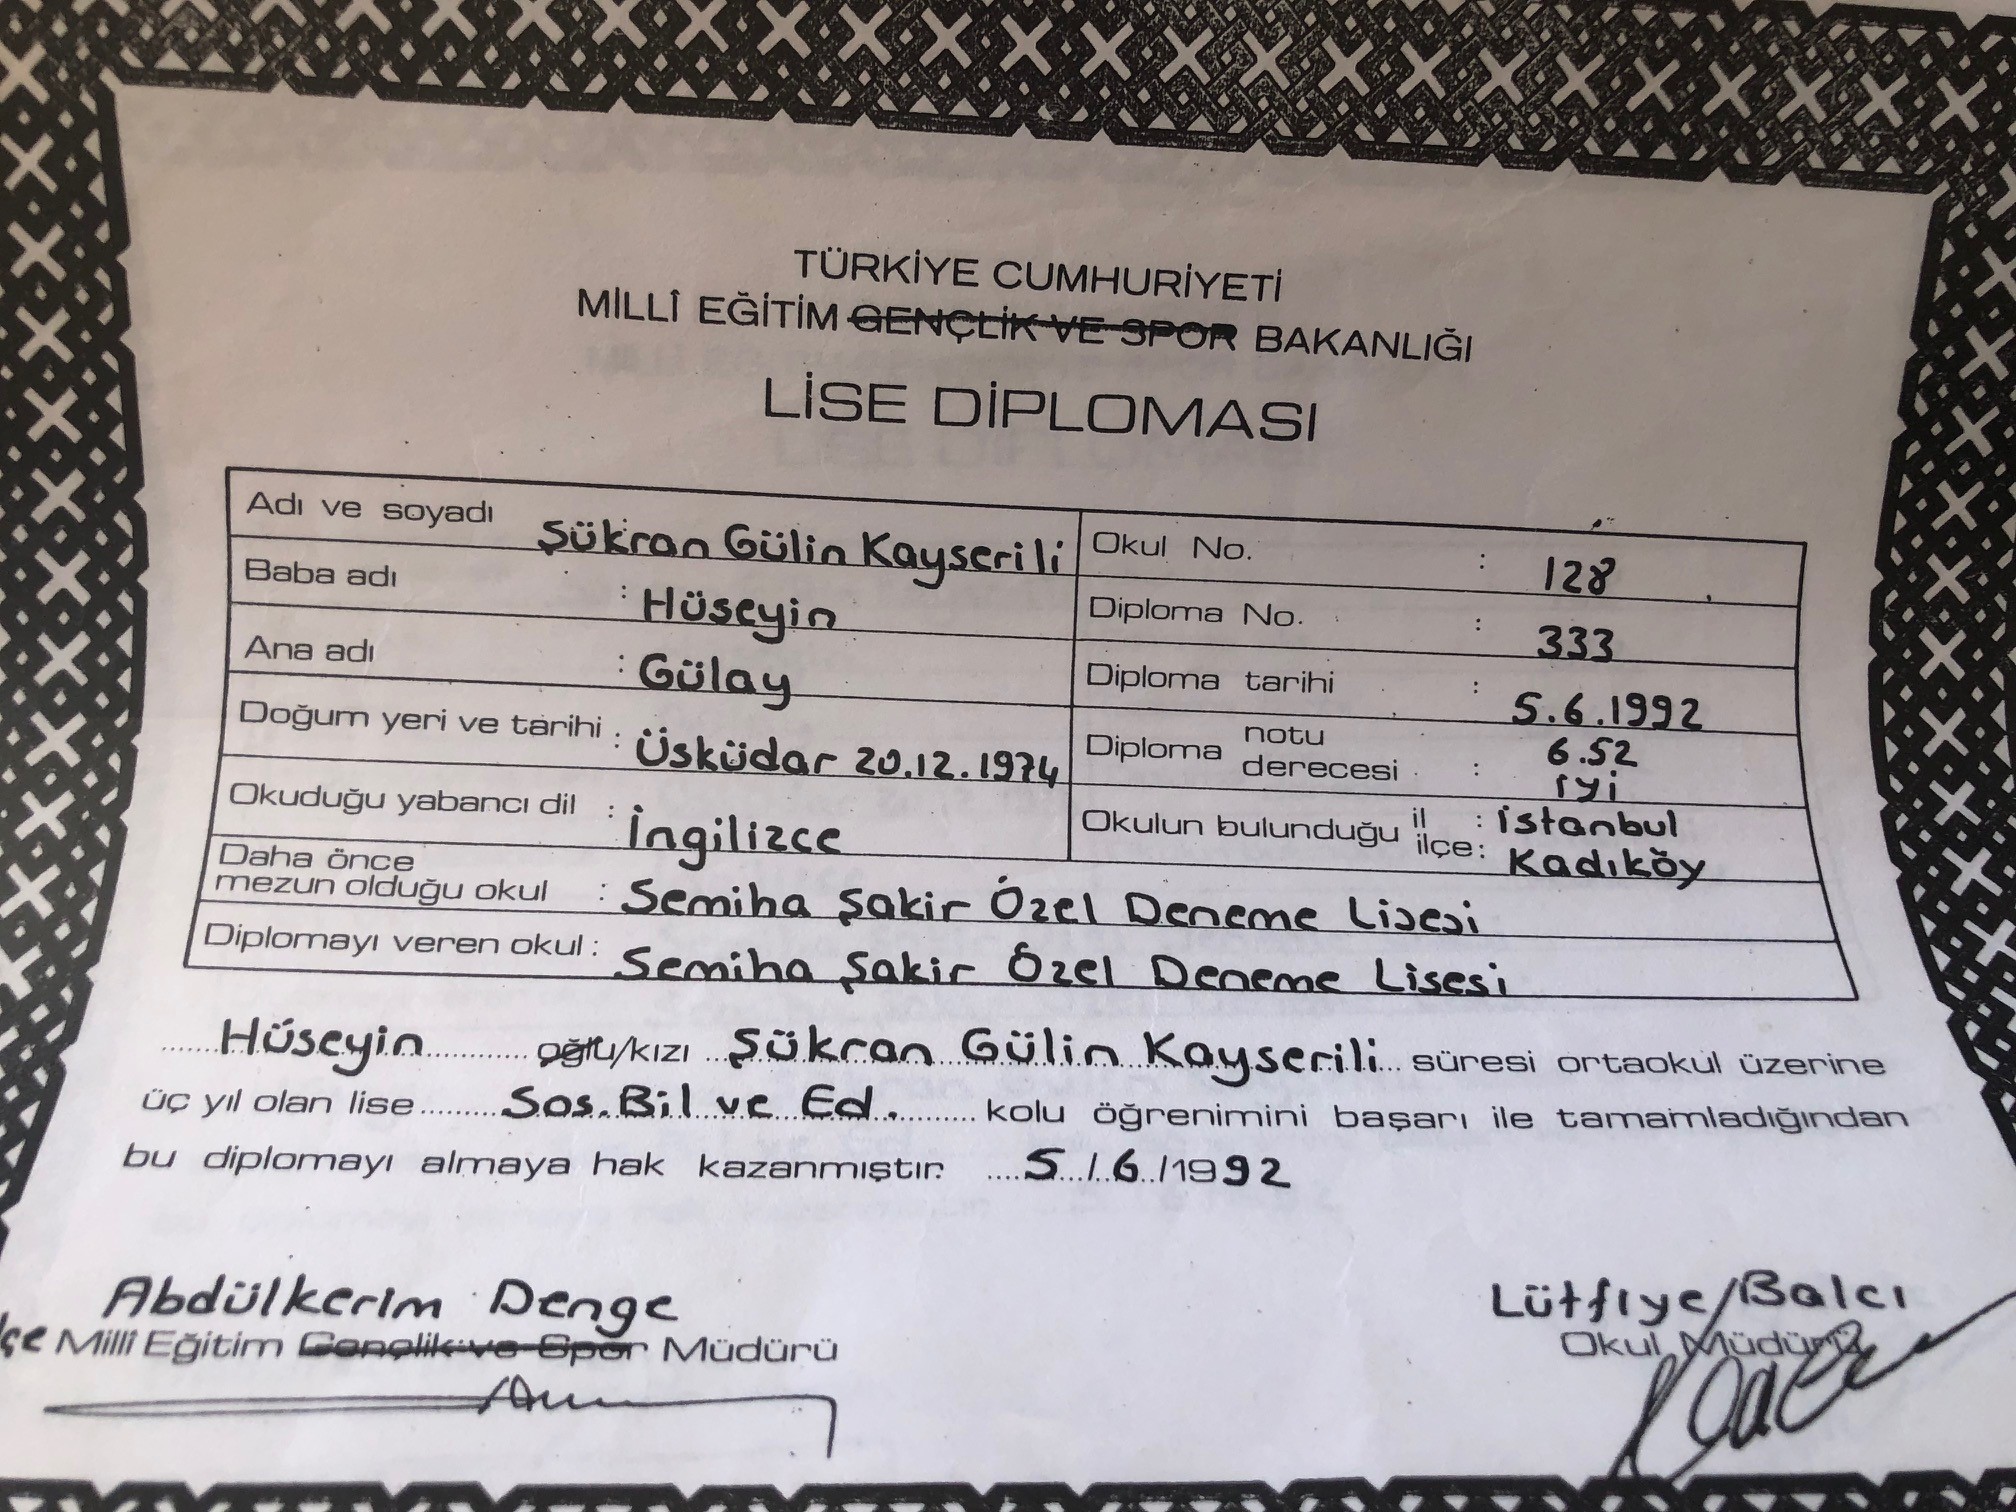 TÜRKİYE CUMHURİYETİ
MİLLÎ EĞİTİM GENÇLİK VE SPOR BAKANLIĞI
LİSE DİPLOMASI
Adı ve soyadı Şükran Gülin Kayserili
Baba adı : Hüseyin
Ana adı : Gülay
Doğum yeri ve tarihi : Üsküdar 20.12.1974
Okuduğu yabancı dil : İngilizce
Okul No. : 128
Diploma No. : 333
Diploma tarihi : 5.6.1992
Diploma notu 6.52
derecesi : iyi
Okulun bulunduğu il : istanbul
ilçe: Kadıköy
Daha önce
mezun olduğu okul : Semiha Şakir Özel Deneme Lisesi
Diplomayı veren okul : Semiha Şakir Özel Deneme Lisesi
Hüseyin oğlu/kızı Şükran Gülin Kayserili süresi ortaokul üzerine
üç yıl olan lise Sos.Bil ve Ed. kolu öğrenimini başarı ile tamamladığından
bu diplomayı almaya hak kazanmıştır. 5/6/1992
Abdülkerim Denge
Millî Eğitim Gençlik ve Spor Müdürü
Lütfiye Balcı
Okul Müdürü